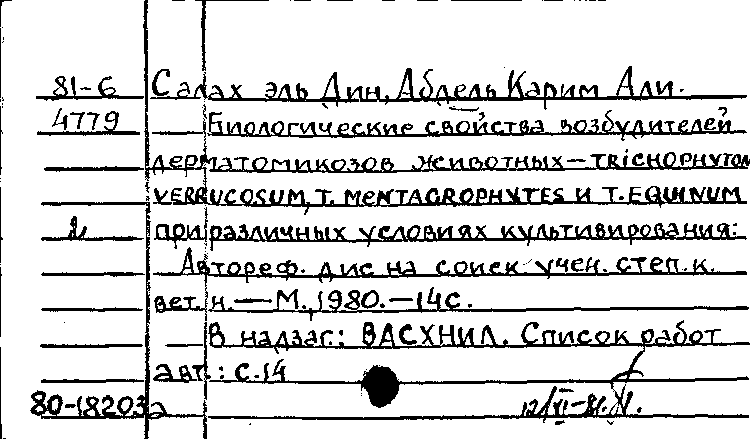 81-6 Салах эль Дин, Абдель Карим Али.
4779 Биологические свойства возбудителей
дерматомикозов животных — TRICHOPHYTON
VERRUCOSUM, T. MENTAGROPHYTES И T. EQUINUM
2 при различных условиях культивирования:
Автореф. дис на соиск учен. степ. к.
вет. н. — М., 1980. — 14 с.
В надзаг.: ВАСХНИЛ. Список работ
авт.: с. 14
80-18203а 12/VI-81.